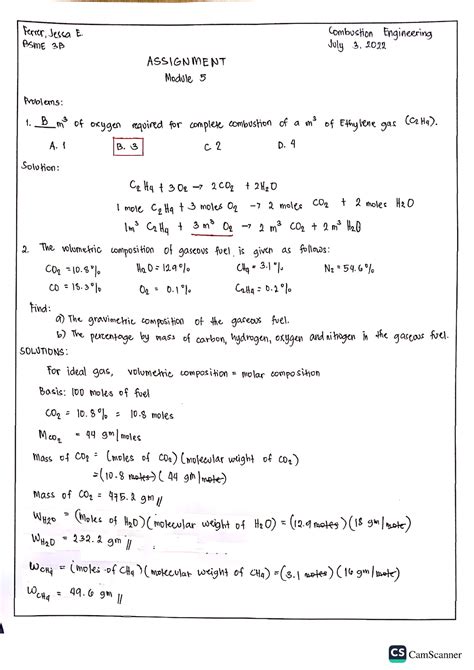 Ferrer, Jessa E.
Combustion Engineering
BSME 3B
July 3, 2022
ASSIGNMENT
Module 5
Problems:
1. B m³ of oxygen required for complete combustion of a m³ of Ethylene gas (C₂H₄).
A. 1 B. 3 C. 2 D. 4
Solution:
C₂H₄ + 3O₂ → 2CO₂ + 2H₂O
1 mole C₂H₄ + 3 moles O₂ → 2 moles CO₂ + 2 moles H₂O
1m³ C₂H₄ + 3 m³ O₂ → 2 m³ CO₂ + 2 m³ H₂O
2. The volumetric composition of gaseous fuel is given as follows:
CO₂ = 10.8% H₂O = 12.9% CH₄ = 3.1% N₂ = 54.6%
CO = 18.3% O₂ = 0.1% C₂H₄ = 0.2%
Find:
a) The gravimetric composition of the gaseous fuel.
b) The percentage by mass of carbon, hydrogen, oxygen and nitrogen in the gaseous fuel.
SOLUTIONS:
For ideal gas, volumetric composition = molar composition
Basis: 100 moles of fuel
CO₂ = 10.8% = 10.8 moles
MCO₂ = 44 gm/moles
Mass of CO₂ = (moles of CO₂)(molecular weight of CO₂)
= (10.8 moles)(44 gm/mole)
Mass of CO₂ = 475.2 gm //
WH₂O = (Moles of H₂O)(molecular weight of H₂O) = (12.9 moles)(18 gm/mole)
WH₂O = 232.2 gm //
WCH₄ = (moles of CH₄)(molecular weight of CH₄) = (3.1 moles)(16 gm/mole)
WCH₄ = 49.6 gm //
CS CamScanner